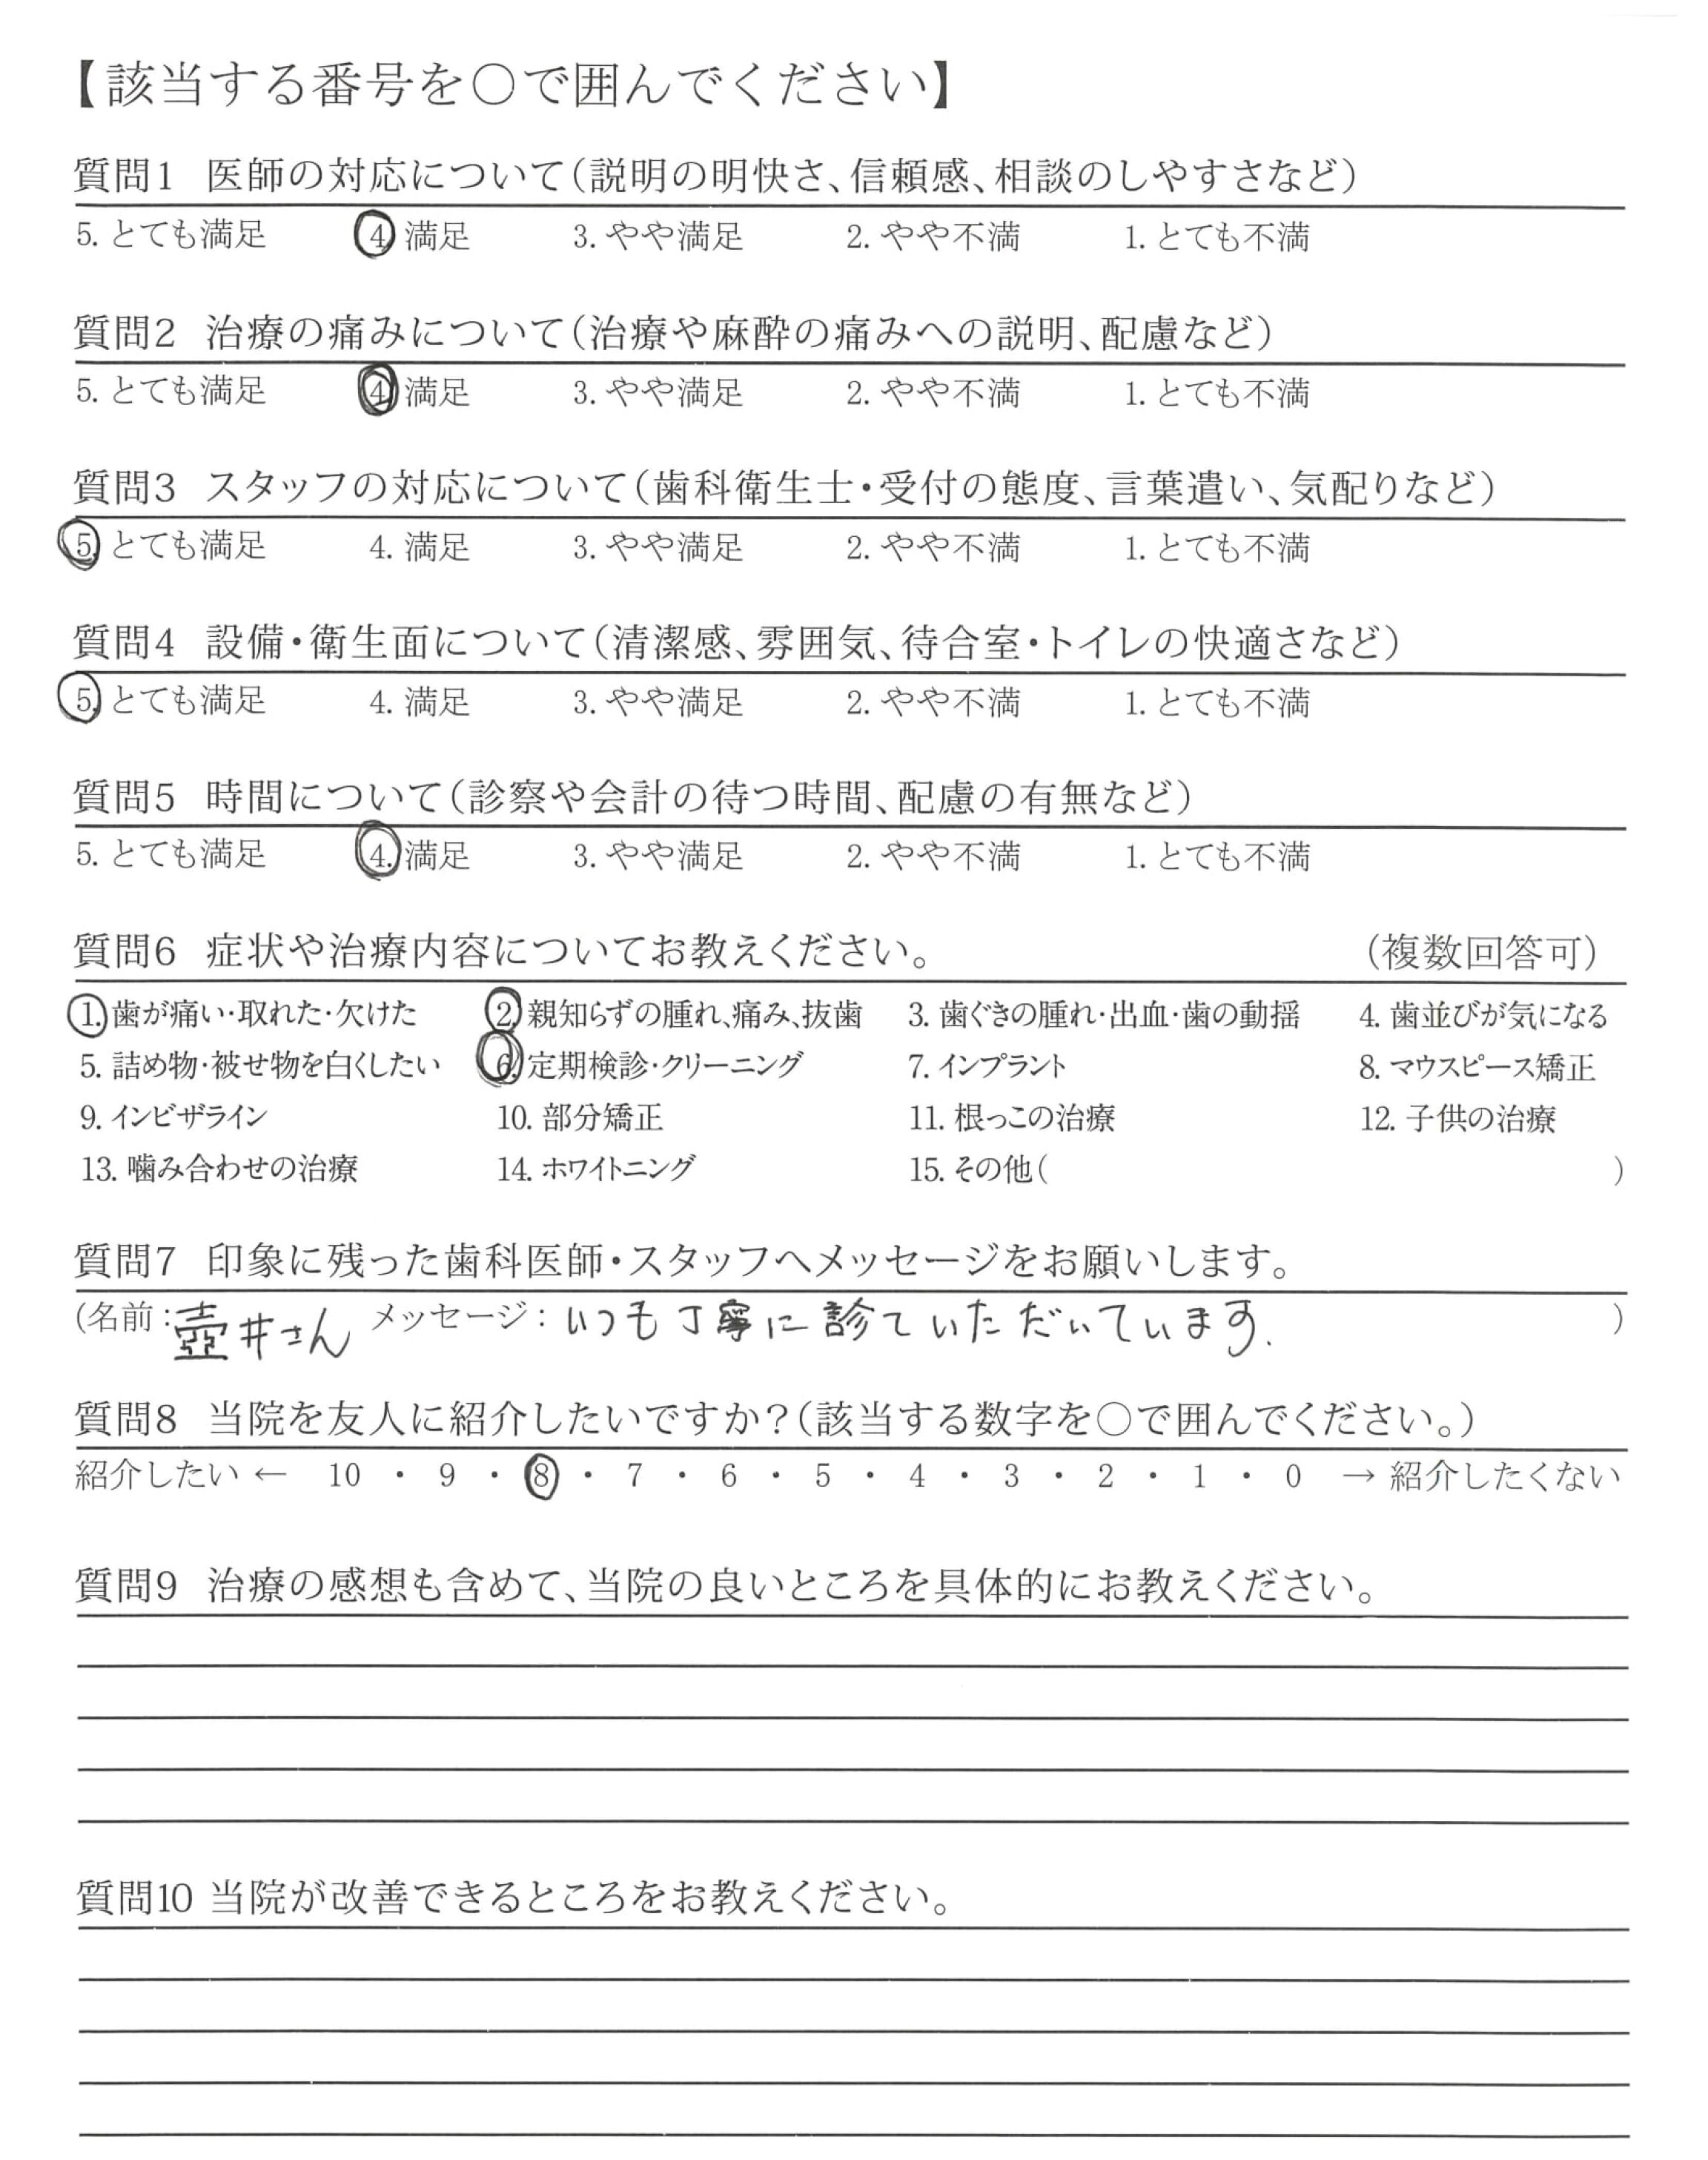 【該当する番号を○で囲んでください】
質問1 医師の対応について（説明の明快さ、信頼感、相談のしやすさなど）
5. とても満足 4. 満足 3. やや満足 2. やや不満 1. とても不満
質問2 治療の痛みについて（治療や麻酔の痛みへの説明、配慮など）
5. とても満足 4. 満足 3. やや満足 2. やや不満 1. とても不満
質問3 スタッフの対応について（歯科衛生士・受付の態度、言葉遣い、気配りなど）
5. とても満足 4. 満足 3. やや満足 2. やや不満 1. とても不満
質問4 設備・衛生面について（清潔感、雰囲気、待合室・トイレの快適さなど）
5. とても満足 4. 満足 3. やや満足 2. やや不満 1. とても不満
質問5 時間について（診察や会計の待つ時間、配慮の有無など）
5. とても満足 4. 満足 3. やや満足 2. やや不満 1. とても不満
質問6 症状や治療内容についてお教えください。 （複数回答可）
1. 歯が痛い・取れた・欠けた 2. 親知らずの腫れ、痛み、抜歯 3. 歯ぐきの腫れ・出血・歯の動揺 4. 歯並びが気になる
5. 詰め物・被せ物を白くしたい 6. 定期検診・クリーニング 7. インプラント 8. マウスピース矯正
9. インビザライン 10. 部分矯正 11. 根っこの治療 12. 子供の治療
13. 噛み合わせの治療 14. ホワイトニング 15. その他（ ）
質問7 印象に残った歯科医師・スタッフへメッセージをお願いします。
(名前：壺井さん メッセージ：いつも丁寧に診ていただいています. )
質問8 当院を友人に紹介したいですか？（該当する数字を○で囲んでください。）
紹介したい ← 10 ・ 9 ・ 8 ・ 7 ・ 6 ・ 5 ・ 4 ・ 3 ・ 2 ・ 1 ・ 0 → 紹介したくない
質問9 治療の感想も含めて、当院の良いところを具体的にお教えください。
質問10 当院が改善できるところをお教えください。